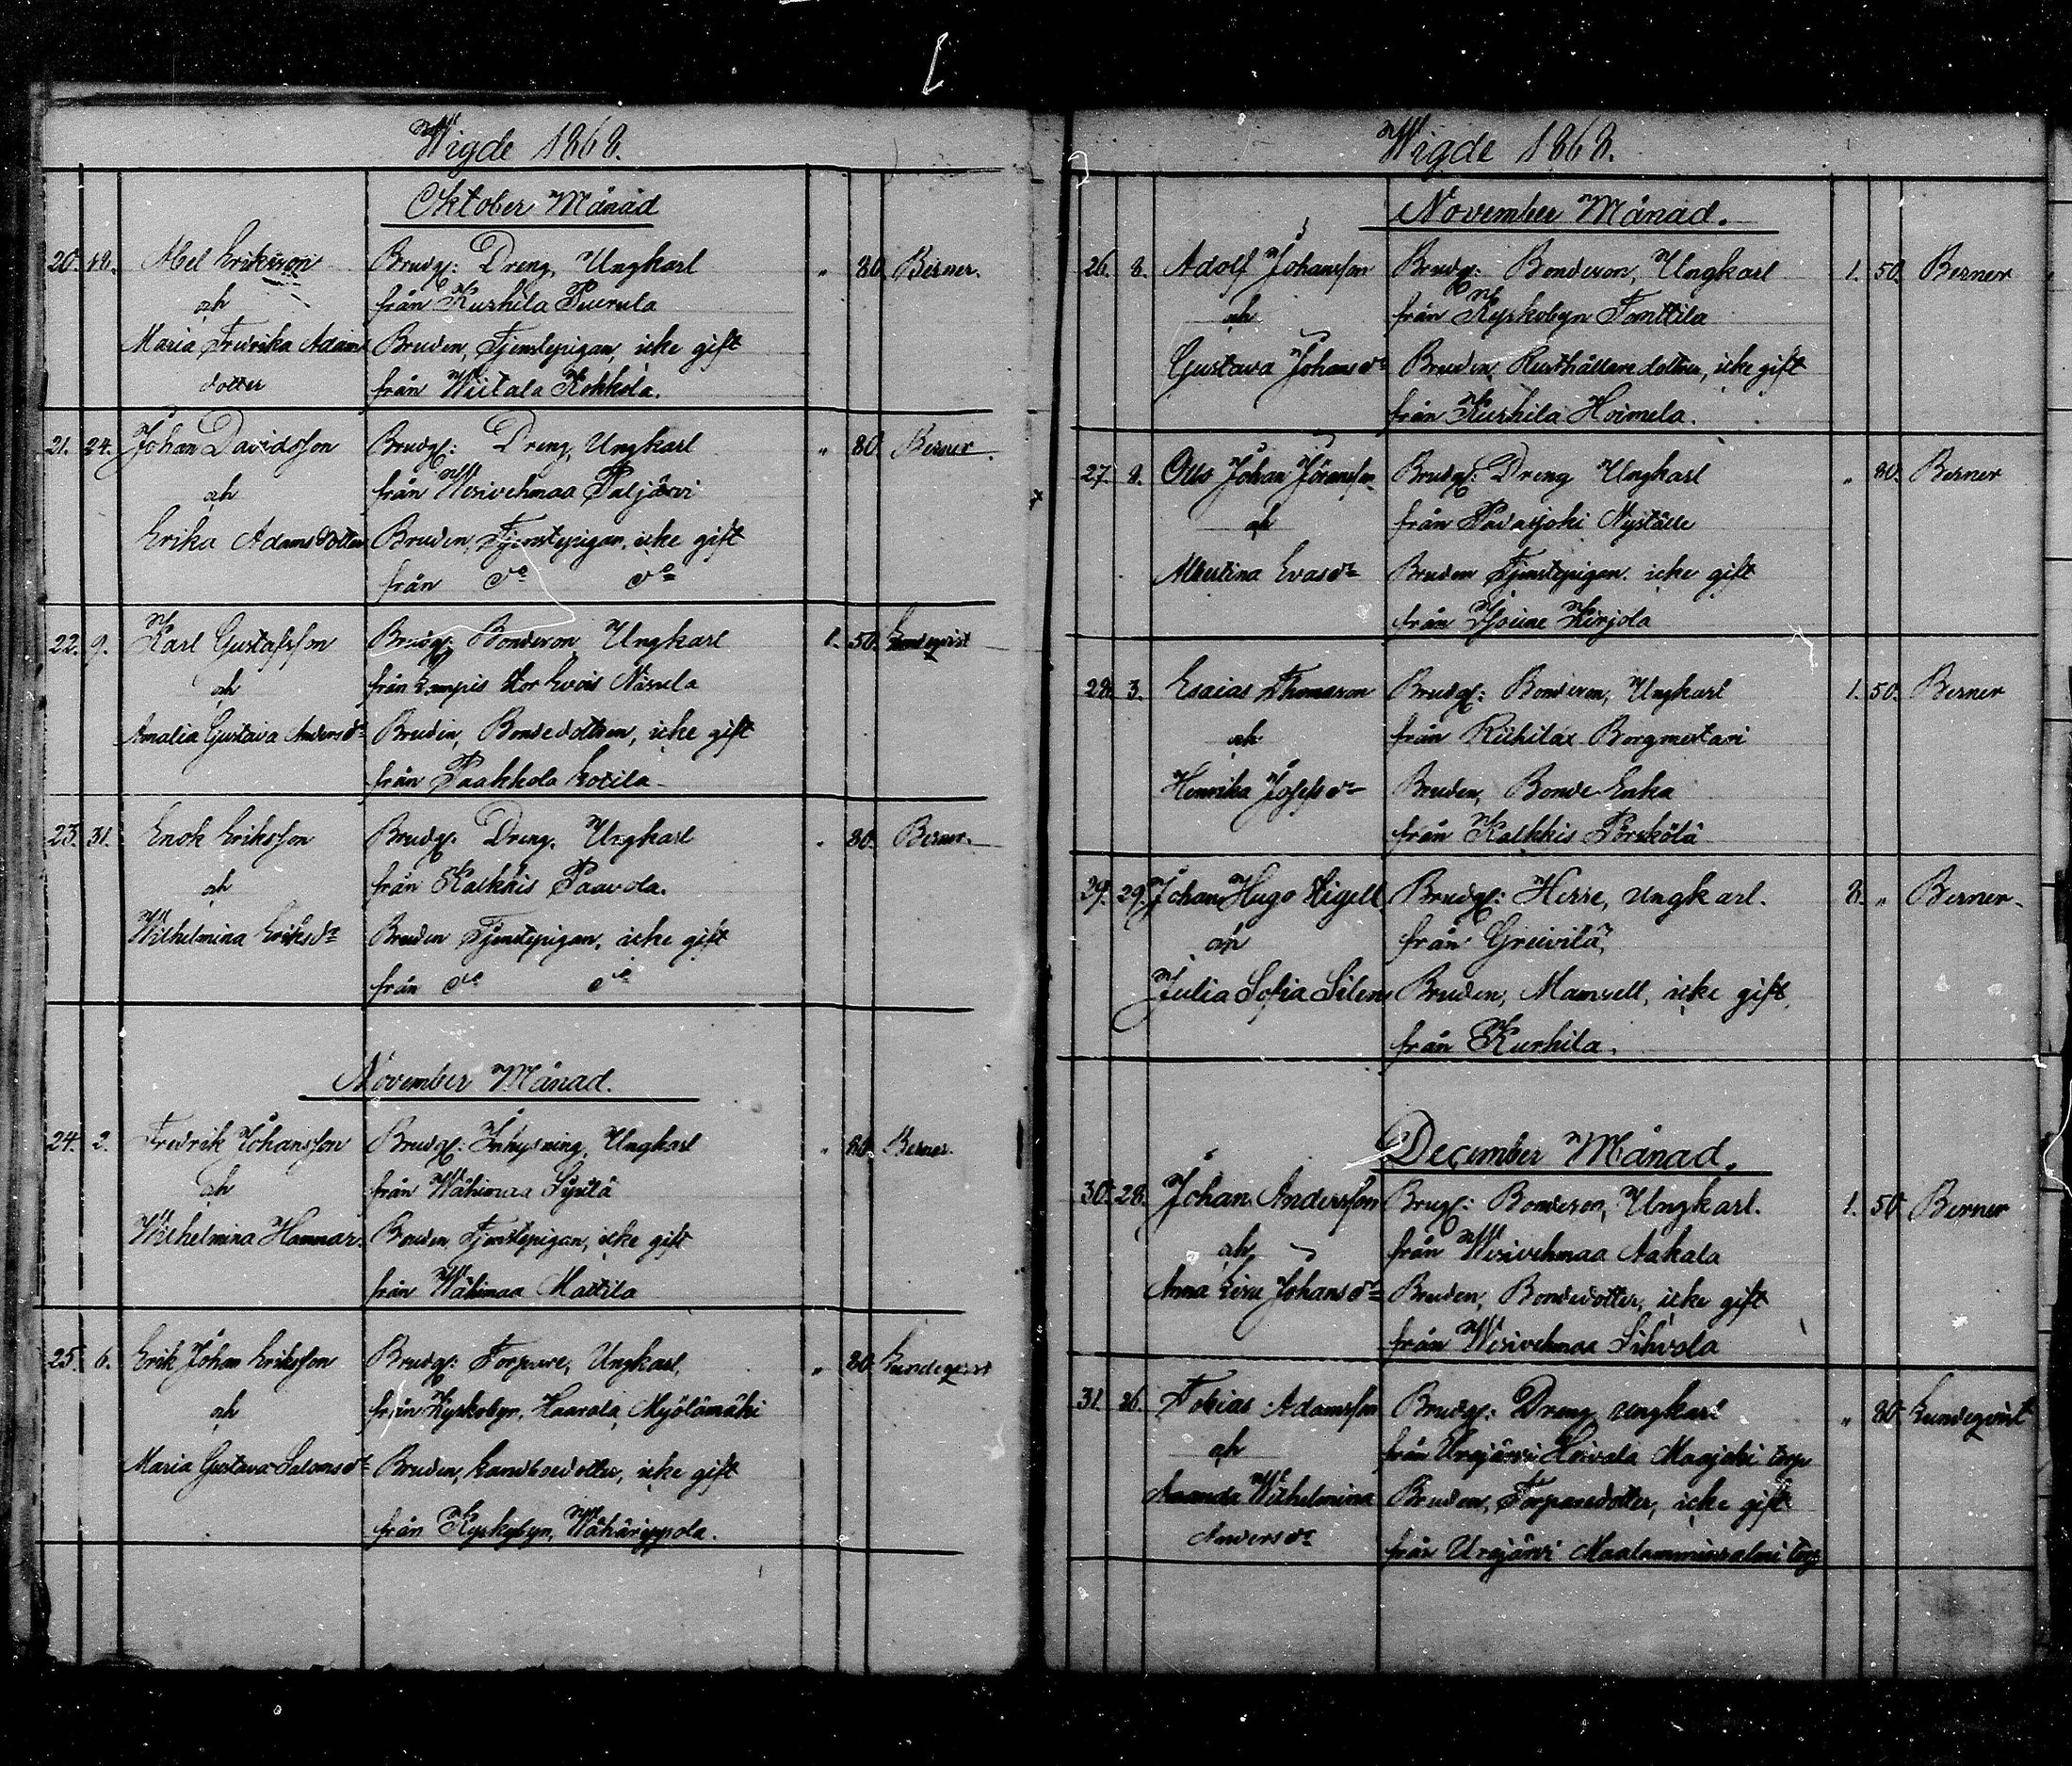 Wigde 1868.
Oktober Månad
20. 18. Abel Eriksson Brudg: Dreng, Ungkarl " 80. Berner.
och från Kurhila Puerula
Maria Fredrika Adams Bruden, Tjenstepigan, icke gift
dotter från Wiitala Kokkola.
21. 24. Johan Davidsson Brudg: Dreng, Ungkarl " 80. Berner.
och från Wesivehmaa Paljärvi
Erika Adamsdotter Bruden, Tjenstepigan, icke gift
från do do
22. 9. Karl Gustafsson Brudg: Bondeson, Ungkarl 1. 50. Lundeqvist
och från Lampis Stor Evois Närula
Amalia Gustava Andersdr Bruden, Bondedottren, icke gift
från Paakkola Kotila
23. 31. Enok Eriksson Brudg: Dreng, Ungkarl " 80. Berner.
och från Kalkkis Paavola.
Wilhelmina Eriksdr Bruden Tjenstepigan, icke gift
från do do
November Månad.
24. 2. Fredrik Johansson Brudg: Inhysning, Ungkarl " 80. Berner.
och från Wähimaa Syrilä
Wilhelmina Hammar. Bruden, Tjenstepigan, icke gift
från Wähimaa Mattila
25. 6. Erik Johan Eriksson Brudg: Torpare, Ungkarl, " 80. Lundeqvist
och från Kyrkobyn, Haarala Myölämäki
Maria Gustava Salomsdr Bruden, Landbodotter, icke gift
från Kyrkobyn, Wähärippola.
Wigde 1868.
November Månad.
26. 8. Adolf Johansson Brudg: Bondeson, Ungkarl 1. 50. Berner
och från Kyrkobyn Tonttila
Gustava Johansdr Bruden, Rusthållare dottren, icke gift
från Kurhila Hoimela.
27. 8. Otto Johan Göransson Brudg: Dreng Ungkarl " 80. Berner
och från Padasjoki Nyställe
Albertina Evasdr Bruden Tjenstepigan. icke gift
från Kirjola
28. 3. Esaias Thomasson Brudg: Bondeson, Ungkarl 1. 50. Berner
och från Riihilax Borgmestari
Henrika Josefsdr Bruden, Bonde Enka
från Kalkkis Pörskölä
29. 29. Johan Hugo Sigell Brudg: Herre, Ungkarl. 8. " Berner.
och från Greivilä,
Julia Sofia Silen Bruden, Mamsell, icke gift,
från Kurhila.
December Månad.
30. 28. Johan Andersson Brudg: Bondeson, Ungkarl. 1. 50 Berner
och från Wesivehmaa Aakala
Anna Lisu Johansdr Bruden, Bondedotter, icke gift
från Wesivehmaa Sihvola
31. 26. Tobias Adamsson Brudg: Dreng Ungkarl " 80 Lundeqvist
och från Urajärvi Hoivala Maajoki torp
Amanda Wilhelmina Bruden, Torparedotter, icke gift
Andersdr från Urajärvi torp